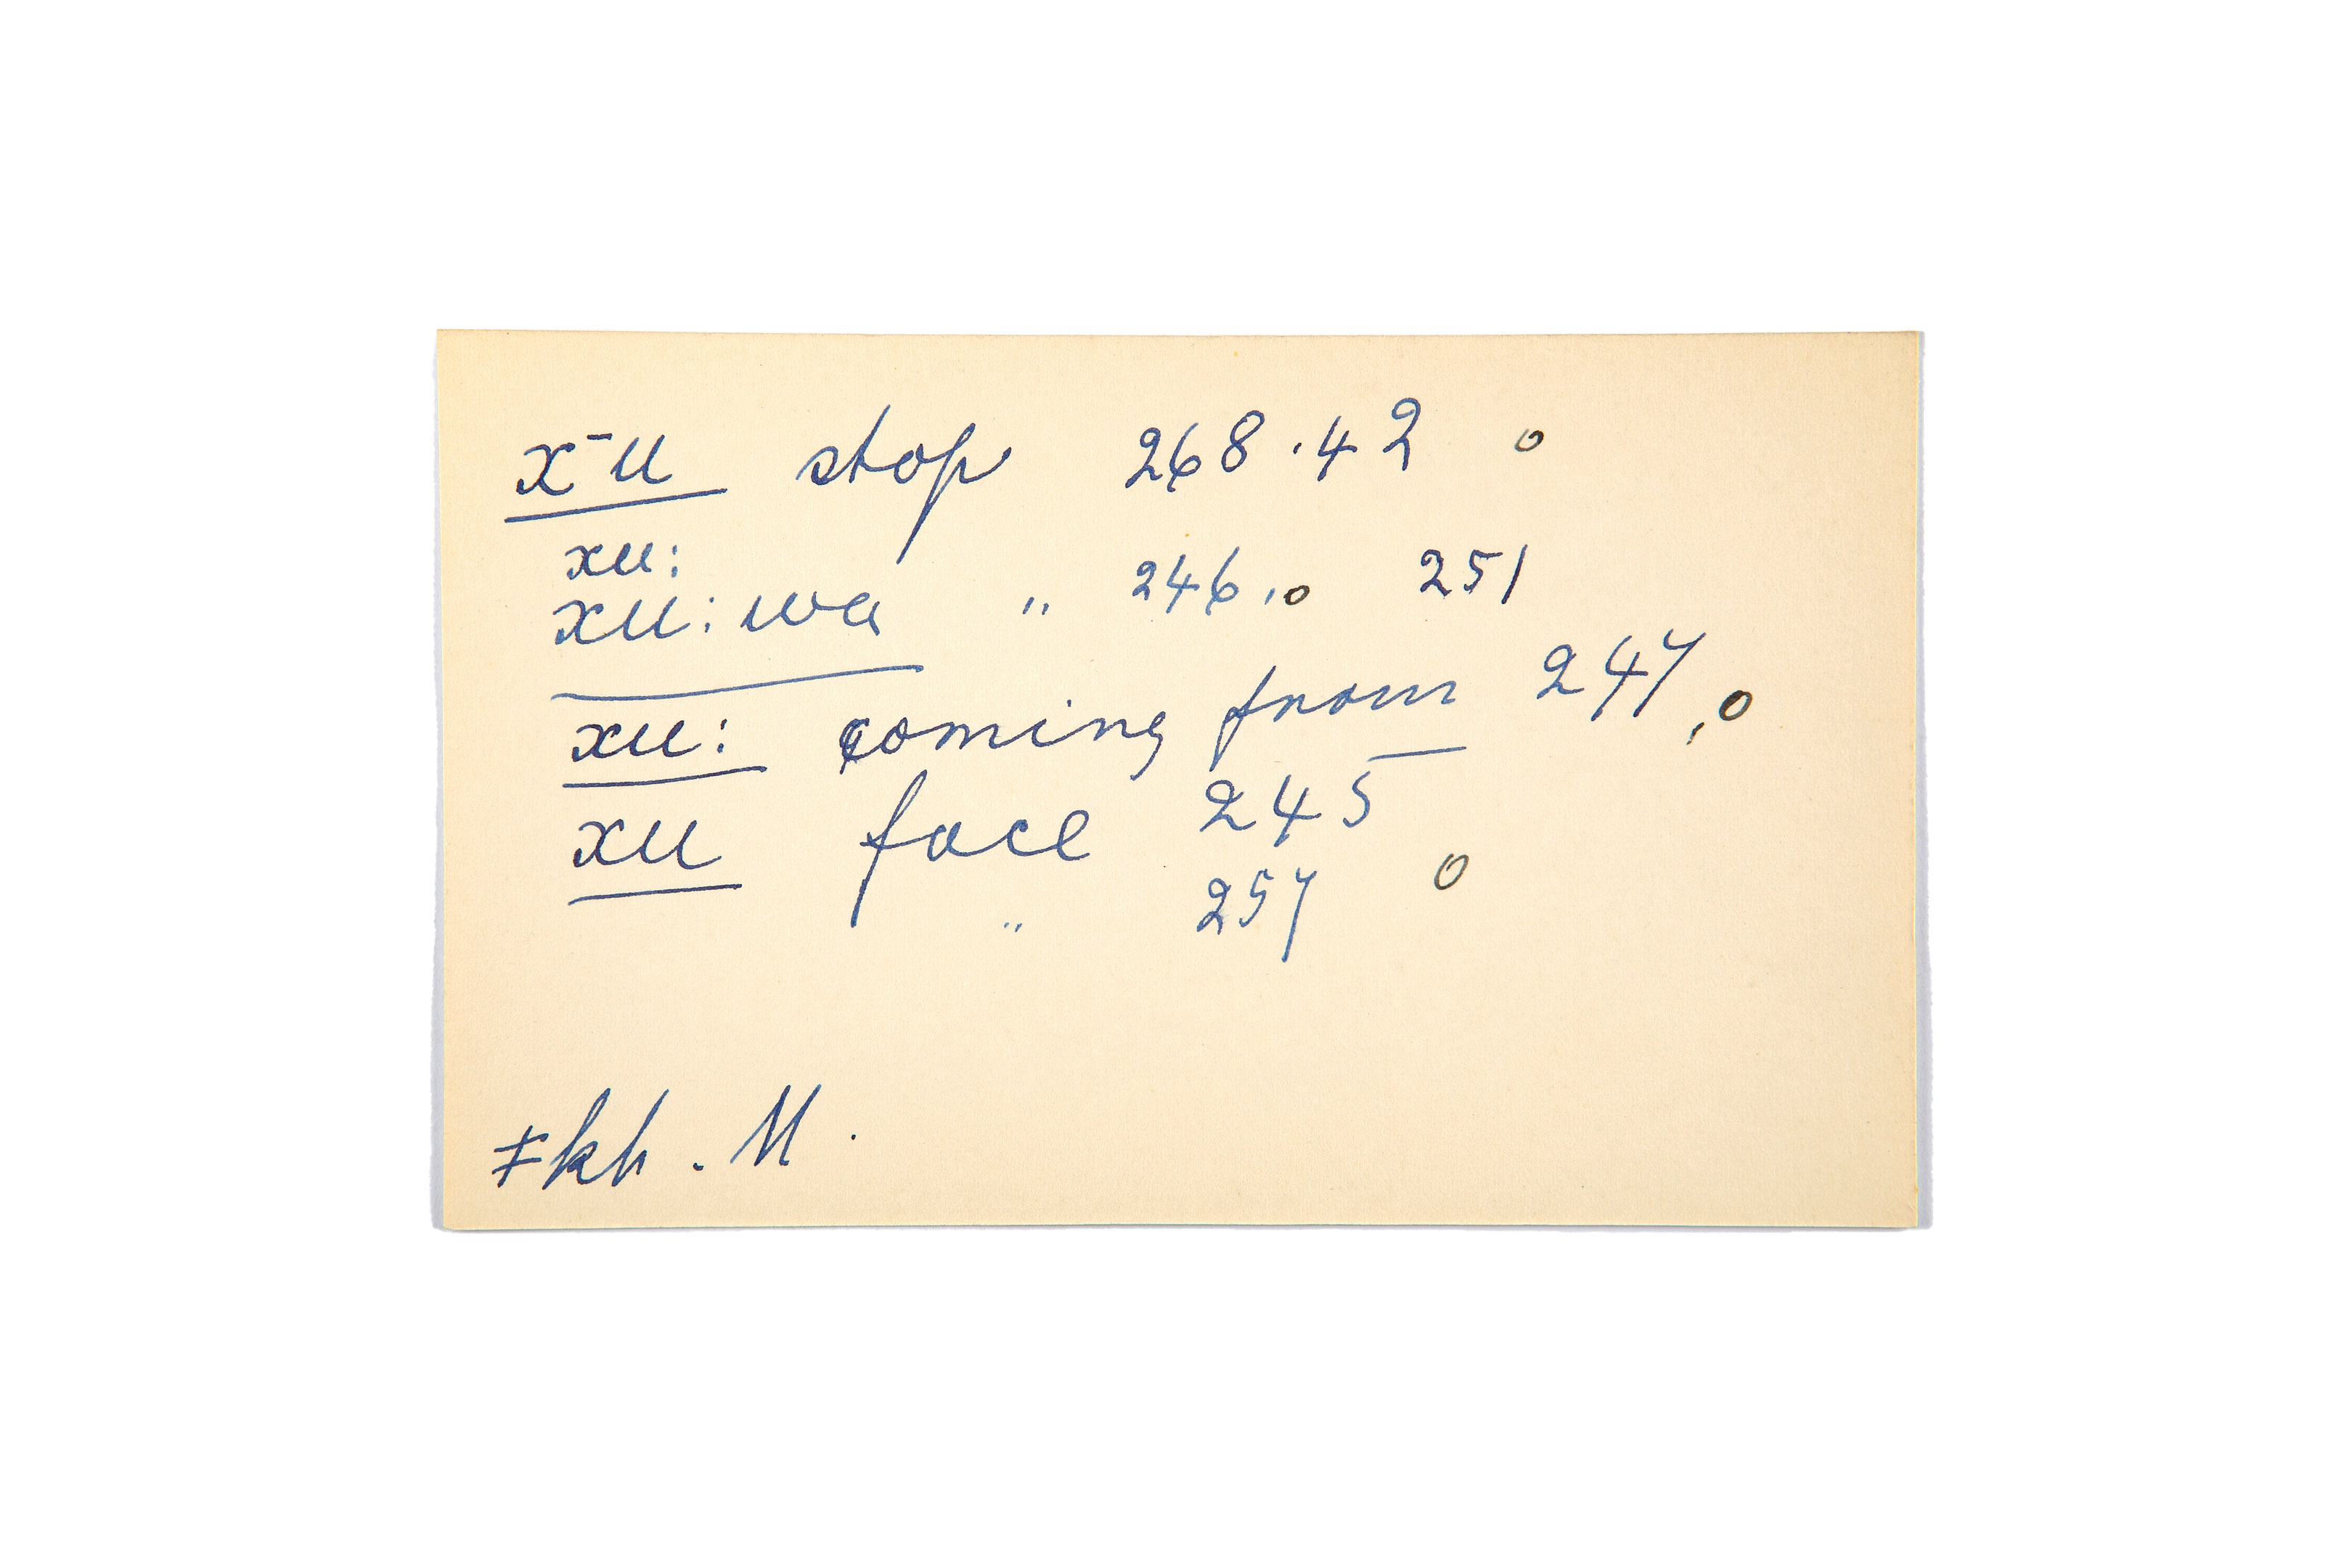 x¯u stop 268.42 o
xu:
xu: wa " 246, o 251
xu: coming from 247, o
xu face 245
" 257 o
ǂkh. M.